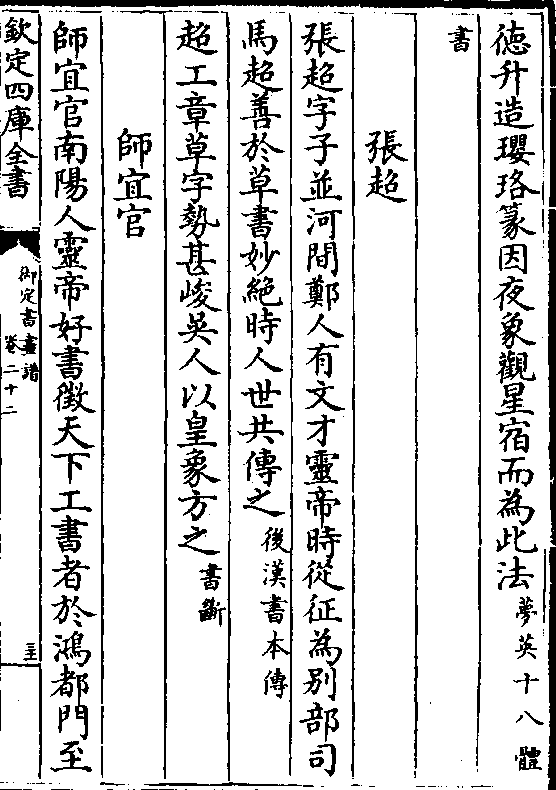 德升造瓔珞篆因夜象觀星宿而為此法夢英十八體
書
張超
張超字子並河間鄭人有文才靈帝時從征為別部司
馬超善於草書妙絶時人世共傳之後漢書本傳
超工章草字勢甚峻吳人以皇象方之書斷
師宜官
師宜官南陽人靈帝好書徵天下工書者於鴻都門至
欽定四庫全書
御定書畫譜
卷二十二